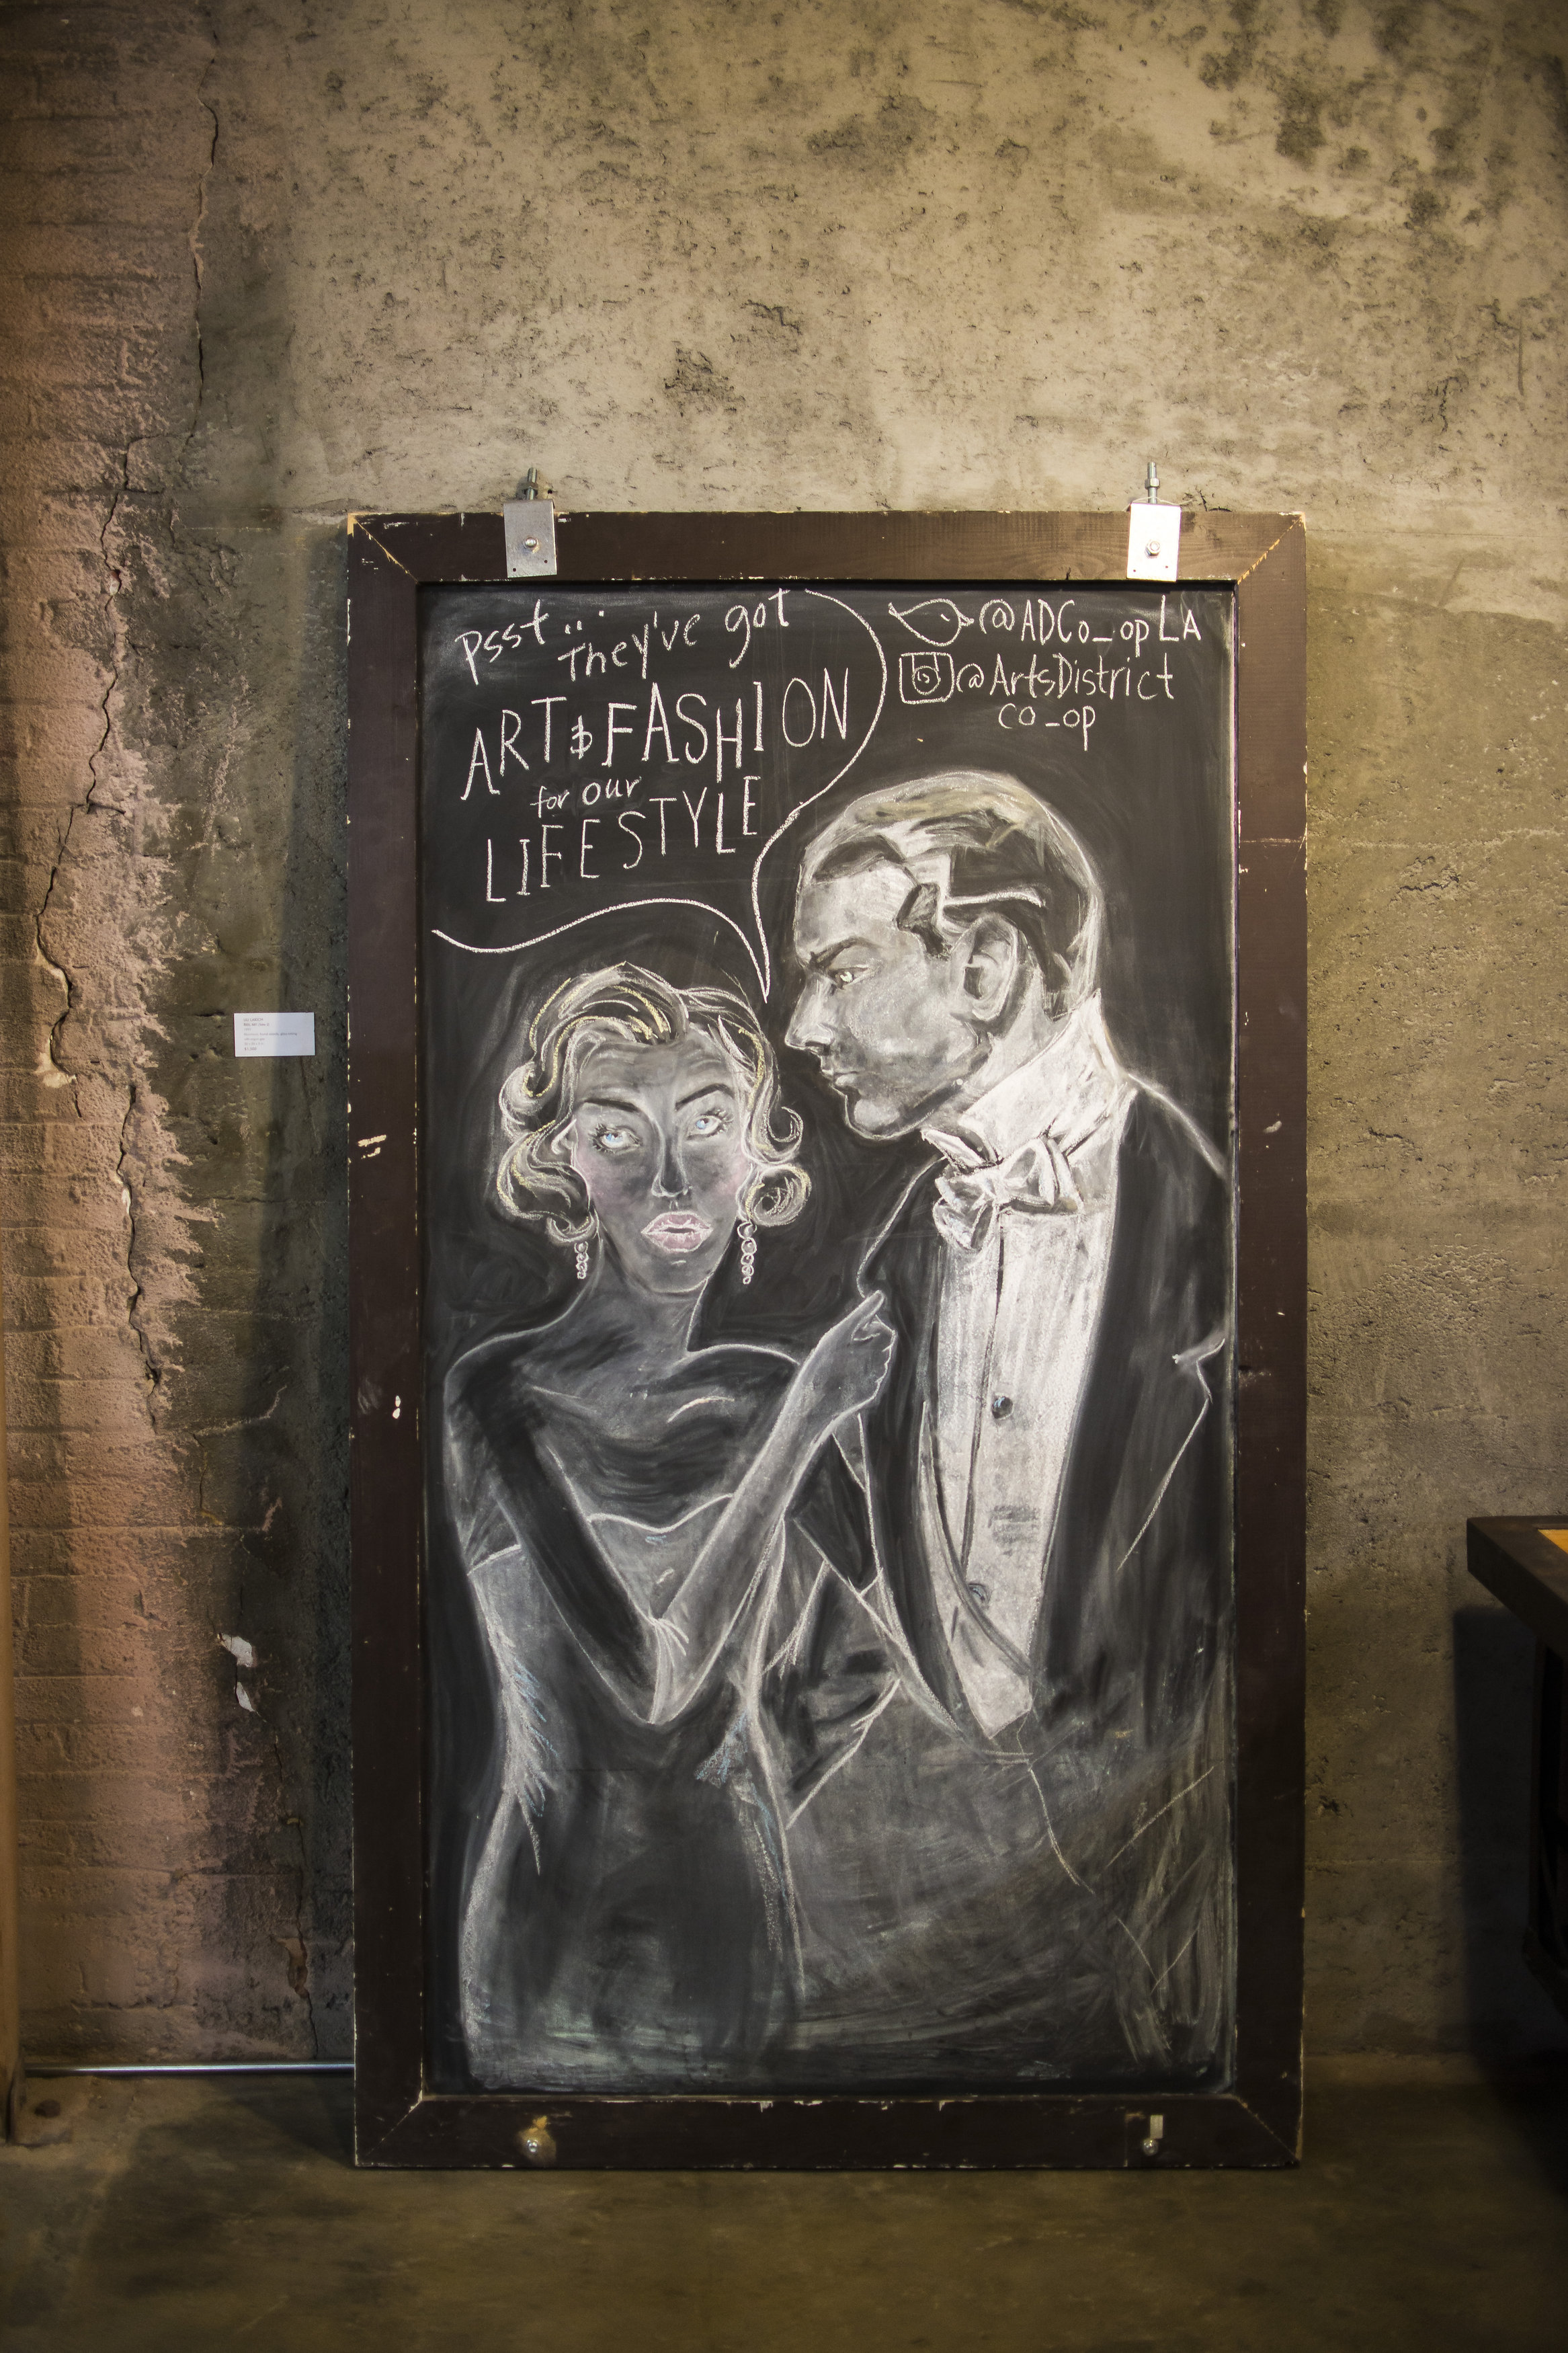 psst...
They've got
ART & FASHION
for our
LIFESTYLE
@ADCo_opLA
@ArtsDistrict
co_op